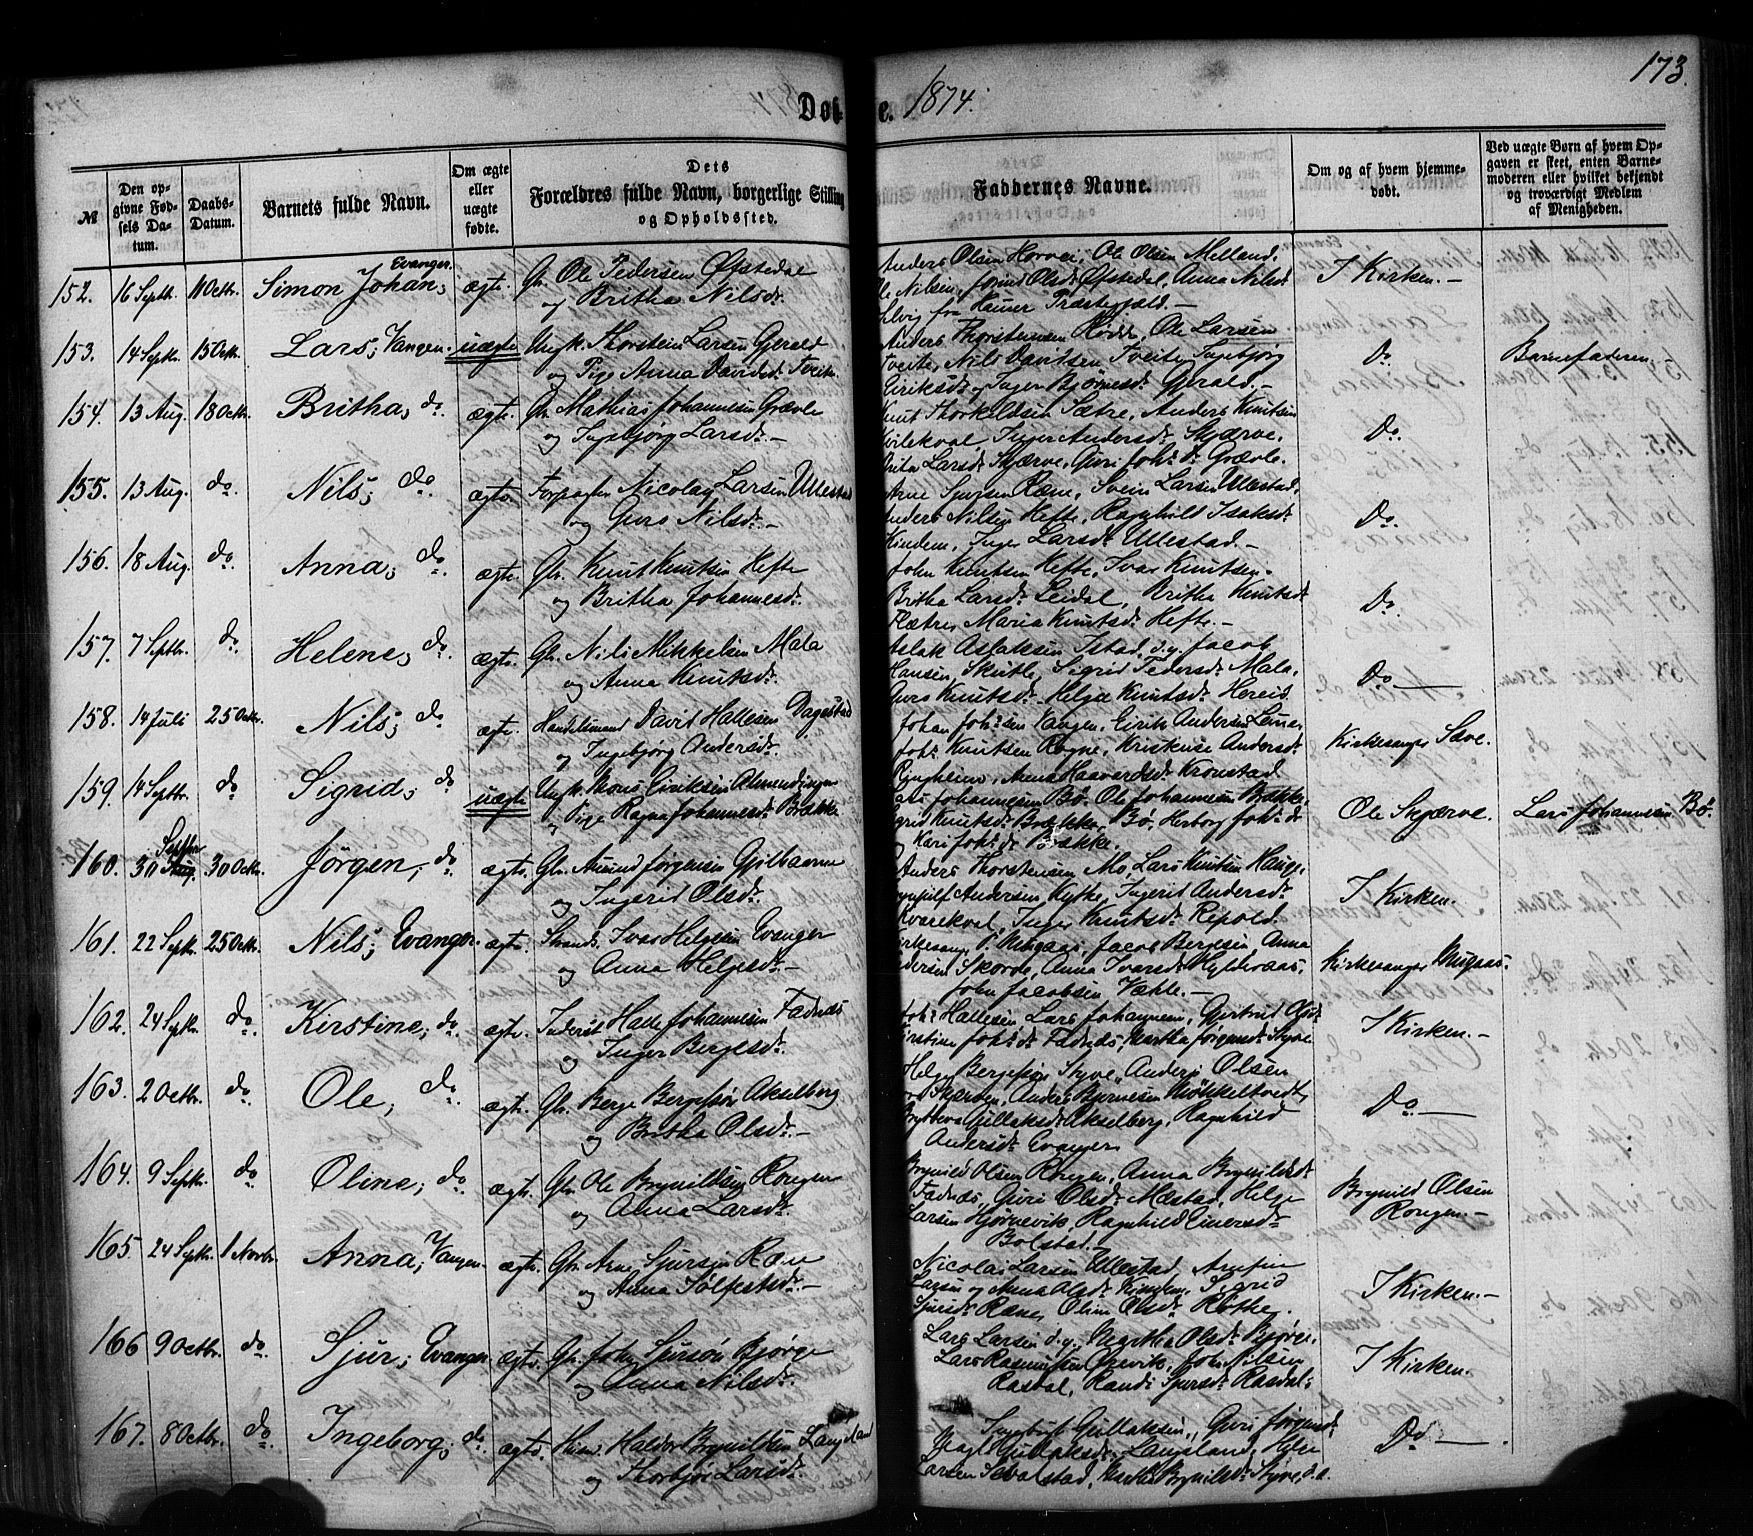 173.
Døbte. 1874.
№
Den opgivne Fødsels Datum.
Daabs-Datum.
Barnets fulde Navn.
Om ægte eller uægte fødte.
Dets Forældres fulde Navn, borgerlige Stilling og Opholdssted.
Faddernes Navne.
Om og af hvem hjemmedøbt.
Ved uægte Børn af hvem Opgaven er skeet, enten Barnemoderen eller hvilket bekjendt og troværdigt Medlem af Menigheden.
152. 16 Septbr. 11 Octbr. Simon Johan, Evanger. ægte. Gbr. Ole Pedersen Øfstedal
og Britha Nilsdr.
Anders Olsen Horvei, Ole Olsen Melland,
Nilsen, Olsdr Øfstedal, Anna Nilsdr
Selvig fra Hammer Præstegjæld.—
I Kirken.—
153. 14 Septbr. 15 Octbr. Lars, Vangen. uægte Ungk. Thorstein Larsen Gjerald
og Pige Anna Davidsdr Tveite.
Anders Thorstensen Rødde, Ole Larsen
Tveite, Nils Davidsen Tveite, Ingebjørg
Eiriksdr og Inger Bjørnesdr Gjerald.—
Do. Barnefaderen.
154. 13 Aug. 18 Octbr. Britha, do. ægte. Gbr. Mathias Johannesen Grævle
og Ingebjørg Larsdr.—
Knut Thorkeldsen Sætre, Anders Knutsen
Kvilekval, Inger Andersdr Skjærve,
Brita Larsdr Skjærve, Guri Johs dr Grævle.
Do.
155. 13 Aug. do. Nils, do. ægte. Forpagter Nicolay Larsen Ullestad
og Guro Nilsdr.—
Arne Sjursen Ræne, Svein Larsen Ullestad,
Anders Nilsen Hefte, Ragnhild Isaksdr
Kindem, Inger Larsdr Ullestad.—
Do.
156. 18 Aug. do. Anna, do. ægte. Gbr. Knut Knutsen Hefte
og Britha Johannesdr.
John Knutsen Hefte, Ivar Knutsen.
Britha Larsdr Leidal, Britha Knutsdr
Flætre, Maria Knutsdr Hefte.—
Do.
157. 7 Septbr. do. Helene, do. ægte. Gbr. Nils Mikkelsen Mala
og Anna Knutsdr.
Aslak Aslaksen Istad d.y. Jacob
Hansen Skutle, Sigrid Pedersdr Mala,
Guro Knutsdr, Helga Knutsdr Hereid.
Do.—
158. 14 Juli 25 Octbr. Nils, do. ægte. Handelsmand David Hallesen Dagestad
og Ingebjørg Andersdr.
Johan Johssen Vangen, Eirik Andersen Leine,
Johs Knutsen Rogne, Kristense Andersdr
Ringheim, Anna Haavardsdr Kronstad
Kirkesanger Sæve.
159. 14 Septbr. do Sigrid, do uægte Ungk. Mons Eiriksen Almendingen
og Pige Ragna Johannesdr Brække
Lars Johannesen Bø, Ole Johannesen Brække,
Knutsdr Brække, Bø, Herborg Johs dr
og Kari Johs dr Brække.
Ole Skjærve. Lars Johannesen Bø.
160. 30 Septbr 30 Octbr. Jørgen, do ægte. Gbr. Amund Jørgensen Gjelhaerne
og Ingerid Olsdr.
Anders Thorstensen Mo, Lars Knutsen Hauge,
Andersen Kytke, Ingerid Andersdr
Kvarekval, Inger Knutsdr Repold.
I Kirken.
161. 22 Septbr. 25 Octbr. Nils, Evanger. ægte. Strands. Ivar Helgesen Evanger
og Anna Helgesdr.—
Kirkesang. P. Mugaas, Jacob Bergesen, Anna
Andersen Skorve, Anna Ivarsdr Hyldernæs,
John Jacobsen Væhle.—
Kirkesanger Mugaas.
162. 24 Septbr. do. Kirstine, do. ægte. Inderst Halle Johannesen Fadnæs
og Inger Bergesdr.
Johs Hallesen, Lars Johannesen, Gjertrud
Kirstine Johs dr Fadnæs, Martha Jørgensdr Styve
I Kirken.—
163. 2 Octbr. do. Ole, do. ægte. Gbr. Berge Bergesøn Akselberg
og Britha Olsdr.—
Helge Bergesøn Styve, Anders Olsen
Anders Bjørnesen Møkkeltvedt,
Brytteva Gullaksdr Akselberg, Ragnhild
Andersdr Evanger.
Do—
164. 9 Septbr. do. Oline, do. ægte. Gbr. Ole Brynildsen Rongen
og Anna Larsdr.
Brynild Olsen Rongen, Anna Brynildsdr
Fadnæs, Guri Olsdr Mæstad, Helge
Larsen Hjørnevik, Ragnhild Einersdr
Bolstad.—
Brynild Olsen
Rongen.—
165. 24 Septbr. 1 Novbr. Anna, Vangen. ægte. Gbr. Arne Sjursen Ræne
og Anna Sølfestsdr.—
Nicolai Larsen Ullestad, Arnfin
Larsen og Anna Olsdr Kindem, Sigrid
Sjursdr Ræne, Oline Olsdr Rothe.
I Kirken.—
166 9 Octbr. do. Sjur, Evanger. ægte. Gbr. John Sjursøn Bjørge
og Anna Nilsdr.
Lars Larsen d.y., Martha Olsdr Bjørge,
Lars Rasmussen Ørevik, John Nilsen
Rasdal, Randi Sjursdr Rasdal.
I Kirken.
167. 8 Octbr. do. Ingeborg, do. ægte. Huusm. Haldor Brynildsen Langeland
og Thorbjør Larsdr.
Ingebrigt Gullaksen, Guri Jørgensdr
Gullaksdr Langeland, Helge
Larsen Sevalstad, Martha Brynildsdr Styve, d.e.
Do—